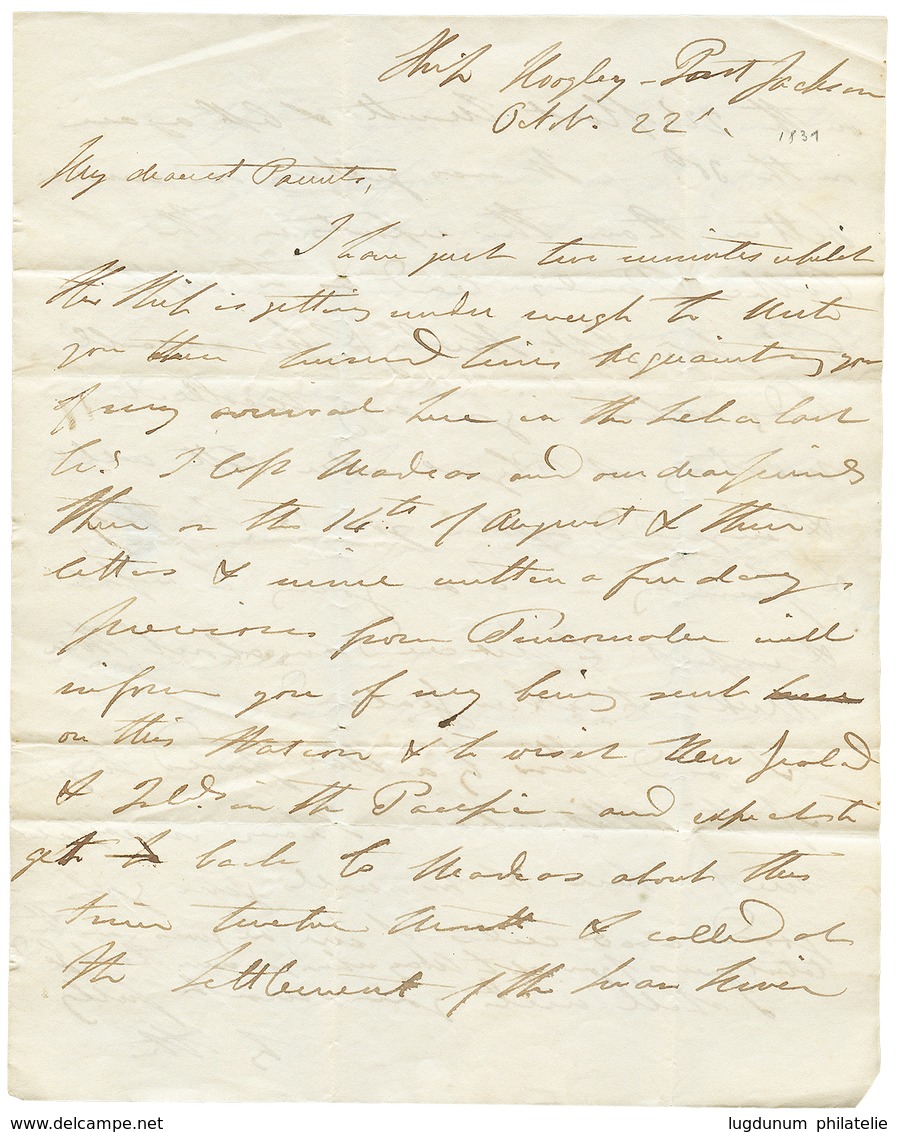 Ship Hoogley - Port Jackson
Octbr. 22d. 1839
My dearest Parents,
I have just two minutes whilst
this Ship is getting under weigh to write
you these hurried lines Acquainting you
of my arrival here in the
I left Madras and our dear friends
there on the 14th of August & their
letters & mine written a few days
previous from Trincomalee will
inform you of my being sent
on this Station & to visit New Zealand
& Islds. in the Pacific - and expect to
get back to Madras about this
time twelve Month & called at
the Settlement of the Swan River
www.delcampe.net
lugdunum philatelie